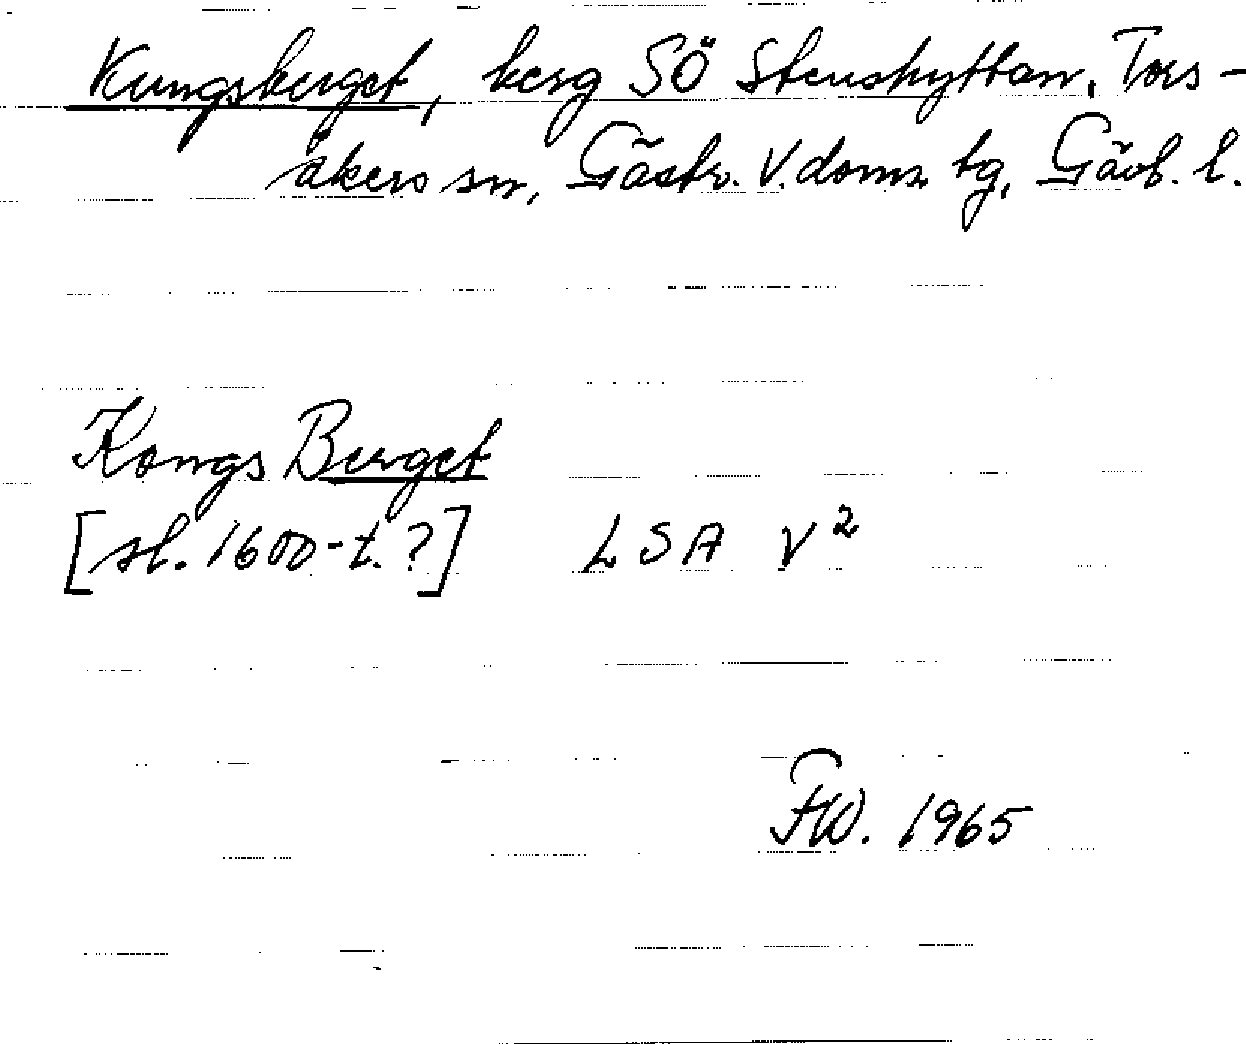 Kungsberget, berg SÖ Stenshyttan, Tors-
åkers sn, Gästr. V. doms tg, Gävl. l.
Kongs Berget
[sl. 1600-t.?] LSA V²
FW. 1965